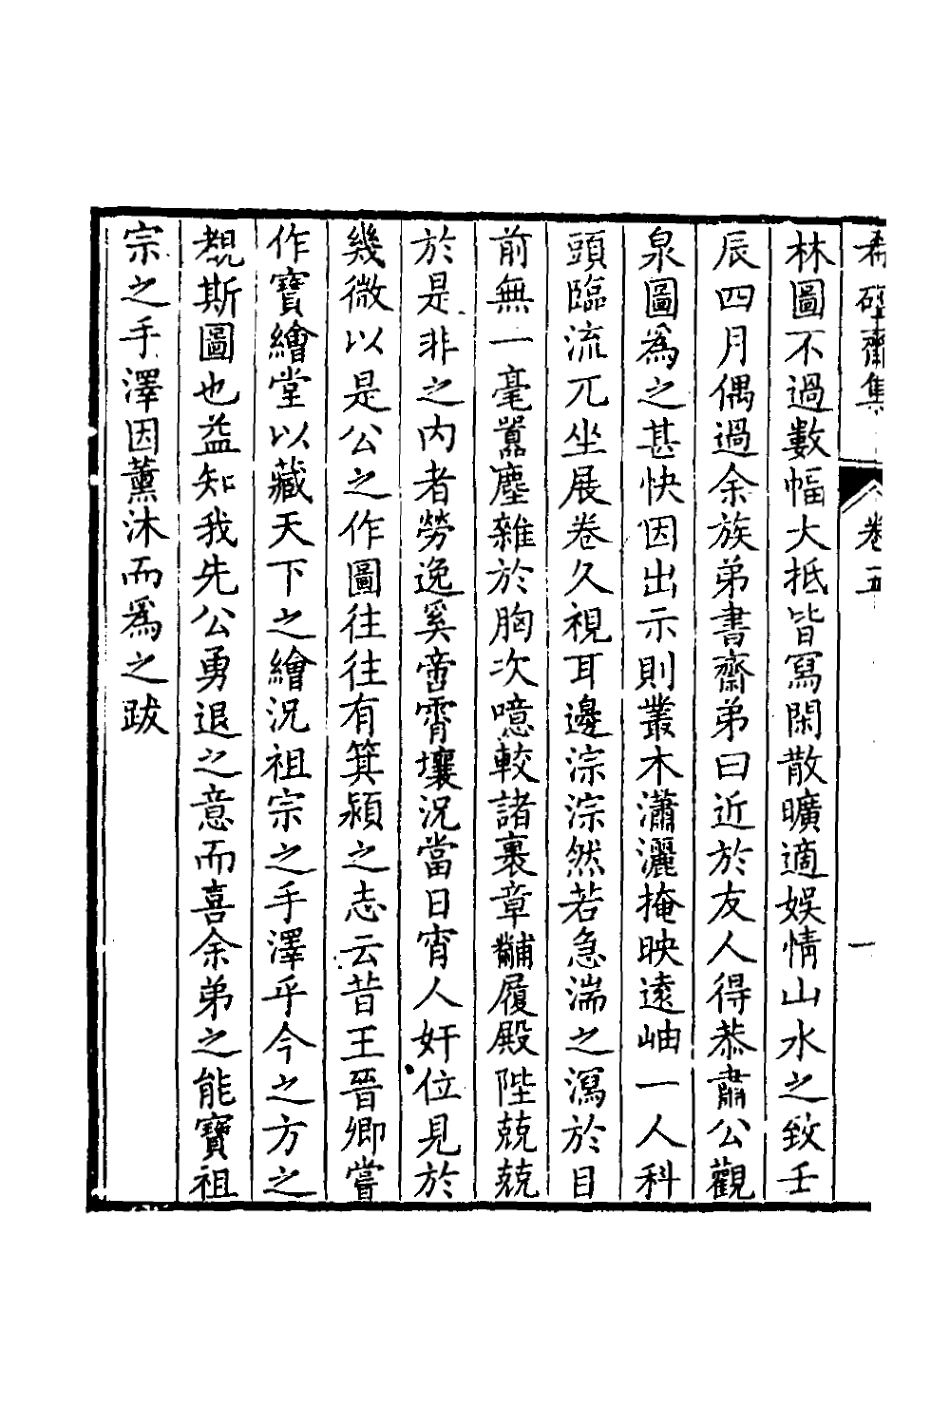 林圖不過數幅大抵皆寫閑散曠適娛情山水之致壬
辰四月偶過余族弟書齋弟曰近於友人得恭肅公觀
泉圖爲之甚快因出示則叢木瀟灑掩映遠岫一人科
頭臨流兀坐展卷久視耳邊淙淙然若急湍之瀉於目
前無一毫囂塵雜於胸次噫較諸裹章黼履殿陛兢兢
於是非之内者勞逸奚啻霄壤況當日宵人奸位見於
幾微以是公之作圖往往有箕潁之志云昔王晉卿嘗
作寶繪堂以藏天下之繪況祖宗之手澤乎今之方之
覩斯圖也益知我先公勇退之意而喜余弟之能寶祖
宗之手澤因薰沐而爲之跋
齋集 卷五 一